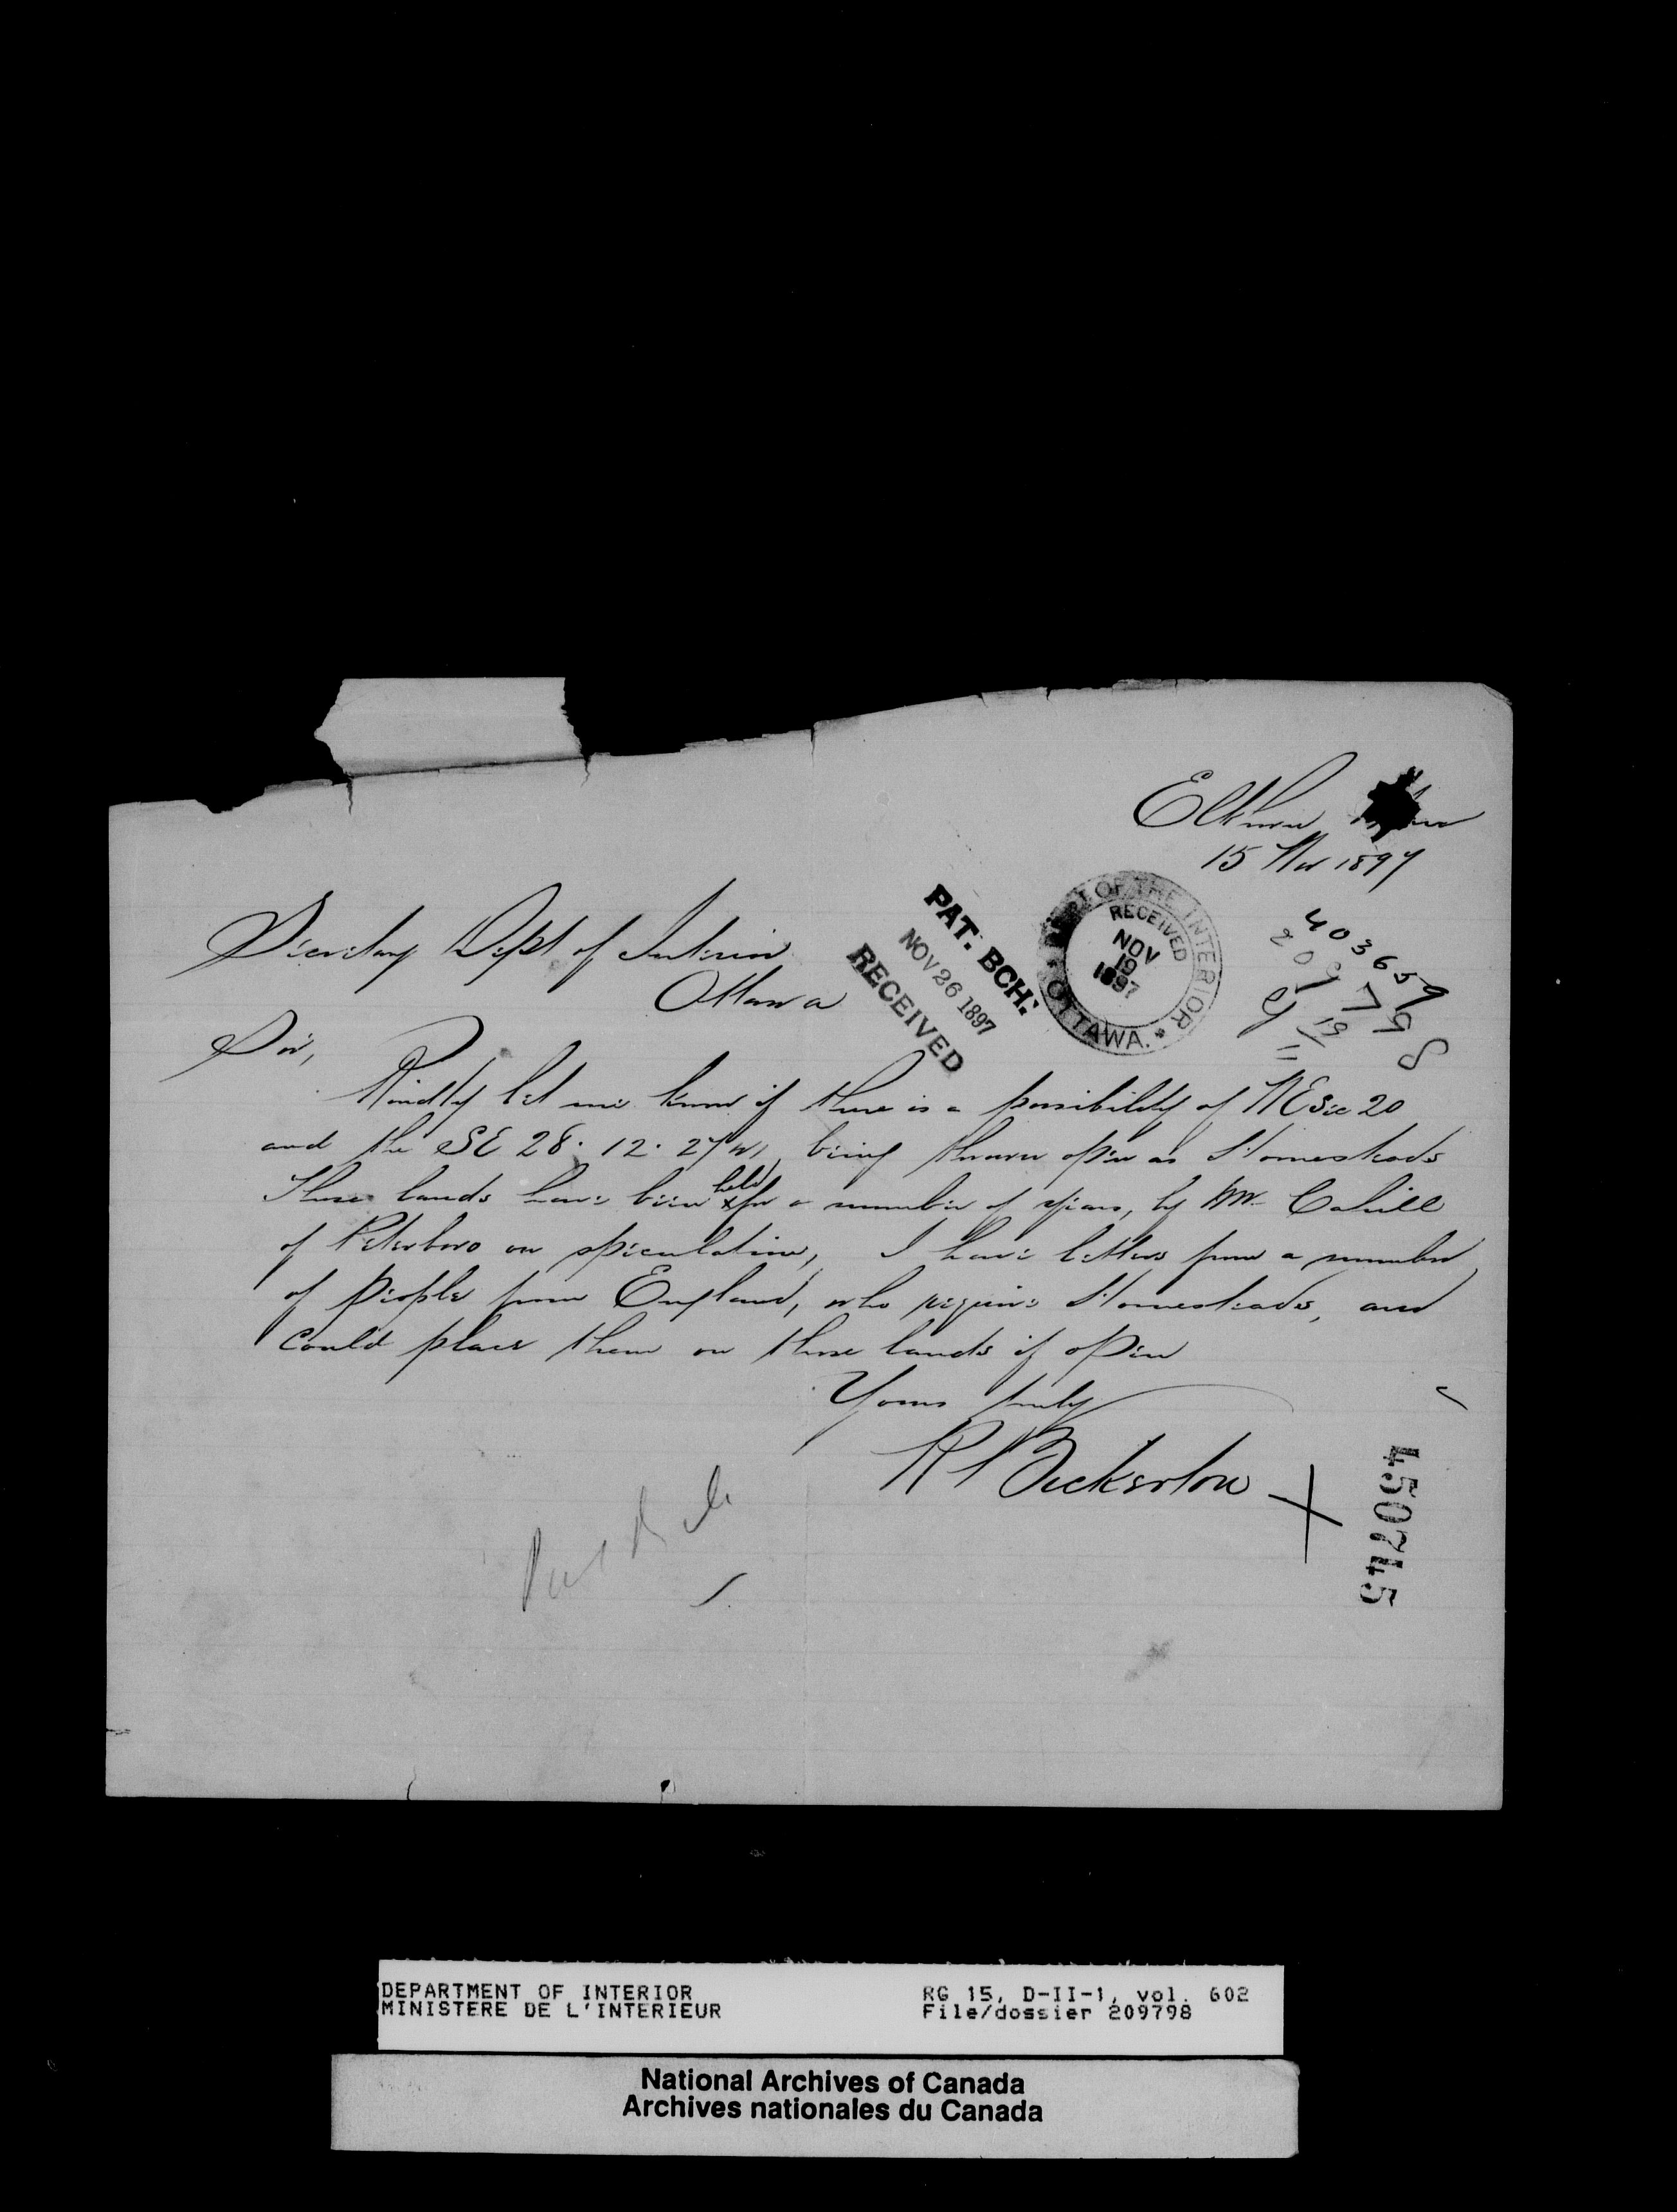 Elkhorn
15 Nov 1897
403659
209798
19/11
Secretary Dept of Interior
Ottawa
PAT. BCH:
NOV 26 1897
RECEIVED
DEPT OF THE INTERIOR
RECEIVED
NOV
19
1897
* OTTAWA. *
Sir,
Kindly let me know if there is a possibility of NE Sec 20
and the SE 28. 12. 27 W1 being thrown open as Homesteads
These lands have been held for a number of years, by Mr. Cahill
of Peterboro on speculation, I have letters from a number
of people from England, who require Homesteads, and
could place them on those lands if open
Yours truly
Bickerton
450745
DEPARTMENT OF INTERIOR
MINISTERE DE L'INTERIEUR
RG 15, D-II-1, vol. 602
File/dossier 209798
National Archives of Canada
Archives nationales du Canada